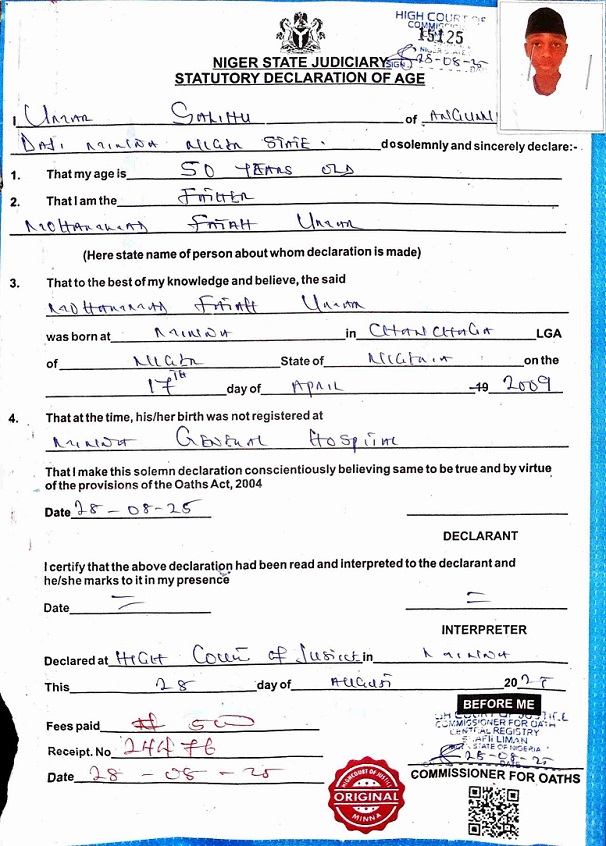 HIGH COURT OF
COMMISSION
15125
SIGN 28-08-25
NIGER STATE JUDICIARY
STATUTORY DECLARATION OF AGE
I Umar Salihu of ANGUWAN
DAJI MINNA NIGER STATE. do solemnly and sincerely declare:-
1. That my age is 50 YEARS OLD
2. That I am the FATHER
MOHAMMAD FATAH Umar
(Here state name of person about whom declaration is made)
3. That to the best of my knowledge and believe, the said
MOHAMMAD FATAH Umar
was born at MINNA in CHANCHAGA LGA
of NIGER State of NIGERIA on the
17TH day of APRIL 19 2009
4. That at the time, his/her birth was not registered at
MINNA GENERAL HOSPITAL
That I make this solemn declaration conscientiously believing same to be true and by virtue
of the provisions of the Oaths Act, 2004
Date 28-08-25
DECLARANT
I certify that the above declaration had been read and interpreted to the declarant and
he/she marks to it in my presence
Date
INTERPRETER
Declared at HIGH Court of Justice in MINNA
This 28 day of AUGUST 2025
BEFORE ME
HIGH COURT OF JUSTICE
COMMISSIONER FOR OATH
CENTRAL REGISTRY
LIMAN
STATE OF NIGERIA
28-08-25
Fees paid ₦ 500
Receipt. No 24476
Date 28-08-25
COMMISSIONER FOR OATHS
HIGH COURT OF JUSTICE
ORIGINAL
MINNA